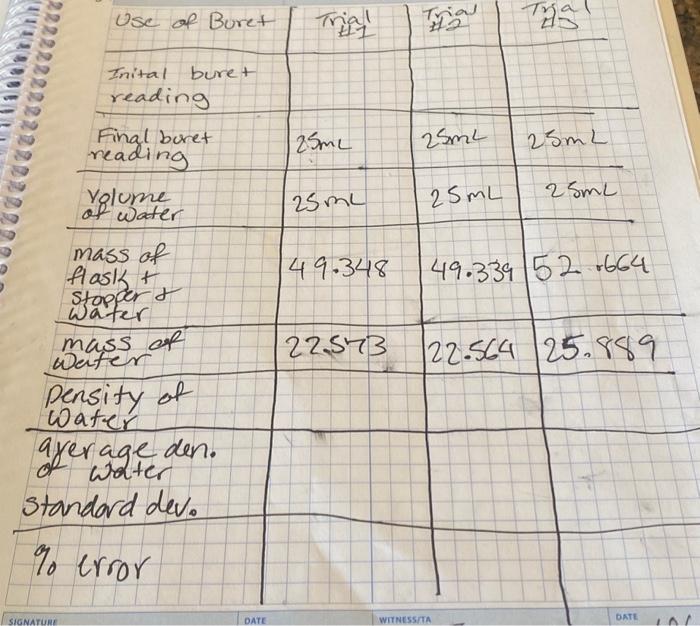 Use of Buret Trial #1 Trial #2 Trial #3
Inital buret
reading
Final buret
reading 25mL 25mL 25mL
Volume
of water 25mL 25mL 25mL
mass of
flask +
stopper +
water 49.348 49.339 52.664
mass of
water 22.573 22.564 25.889
Density of
water
average den.
of water
Standard dev.
% error
SIGNATURE DATE WITNESS/TA DATE